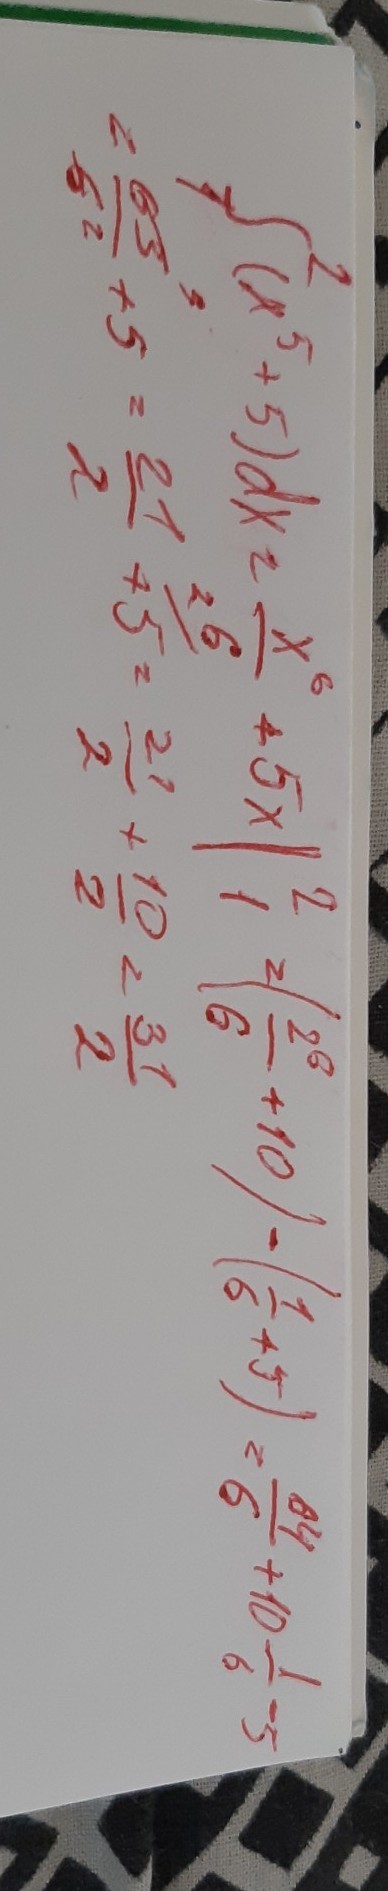 ∫₁² (x⁵ + 5) dx = x⁶/6 + 5x |₁² = (2⁶/6 + 10) - (1/6 + 5) = 64/6 + 10 1/6 - 5
= 63/6 + 5 = 21/2 + 5 = 21/2 + 10/2 = 31/2